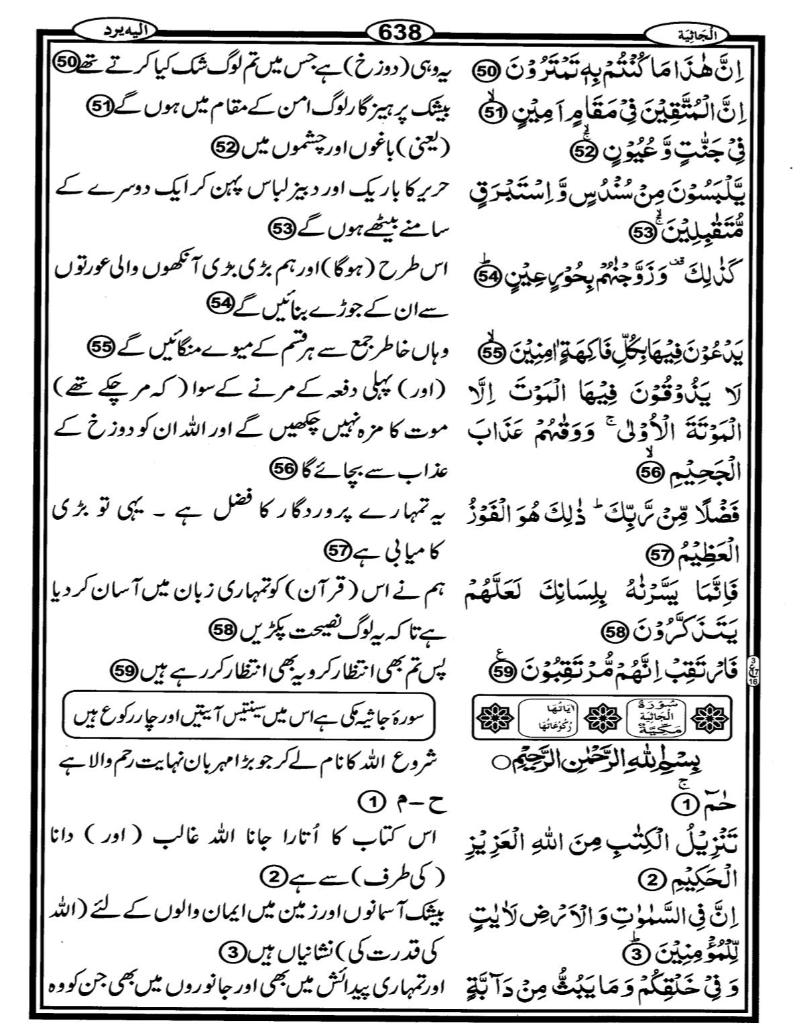 الجاثیة
638
الیه یرد
اِنَّ هٰذَا مَا كُنْتُمْ بِهٖ تَمْتَرُوْنَ 50
یہ وہی (دوزخ) ہے جس میں تم لوگ شک کیا کرتے تھے 50
اِنَّ الْمُتَّقِیْنَ فِیْ مَقَامٍ اَمِیْنٍ ۙ 51
بیشک پرہیز گار لوگ امن کے مقام میں ہوں گے 51
فِیْ جَنّٰتٍ وَّ عُیُوْنٍ ۚۙ 52
(یعنی) باغوں اور چشموں میں 52
یَّلْبَسُوْنَ مِنْ سُنْدُسٍ وَّ اِسْتَبْرَقٍ
حریر کا باریک اور دبیز لباس پہن کر ایک دوسرے کے
مُّتَقٰبِلِیْنَ ۚۙ 53
سامنے بیٹھے ہوں گے 53
كَذٰلِكَ ۫ وَ زَوَّجْنٰهُمْ بِحُوْرٍ عِیْنٍ ؕ 54
اس طرح (ہوگا) اور ہم بڑی بڑی آنکھوں والی عورتوں
سے ان کے جوڑے بنائیں گے 54
یَدْعُوْنَ فِیْهَا بِكُلِّ فَاكِهَةٍ اٰمِنِیْنَ ۙ 55
وہاں خاطر جمع سے ہر قسم کے میوے منگائیں گے 55
لَا یَذُوْقُوْنَ فِیْهَا الْمَوْتَ اِلَّا
(اور) پہلی دفعہ کے مرنے کے سوا (کہ مر چکے تھے)
الْمَوْتَةَ الْاُوْلٰی ۚ وَ وَقٰىهُمْ عَذَابَ
موت کا مزہ نہیں چکھیں گے اور اللہ ان کو دوزخ کے
الْجَحِیْمِ ۙ 56
عذاب سے بچائے گا 56
فَضْلًا مِّنْ رَّبِّكَ ؕ ذٰلِكَ هُوَ الْفَوْزُ
یہ تمہارے پروردگار کا فضل ہے ۔ یہی تو بڑی
الْعَظِیْمُ 57
کامیابی ہے 57
فَاِنَّمَا یَسَّرْنٰهُ بِلِسَانِكَ لَعَلَّهُمْ
ہم نے اس (قرآن) کو تمہاری زبان میں آسان کر دیا
یَتَذَكَّرُوْنَ 58
ہے تاکہ یہ لوگ نصیحت پکڑیں 58
فَارْتَقِبْ اِنَّهُمْ مُّرْتَقِبُوْنَ ۠ 59
پس تم بھی انتظار کرو یہ بھی انتظار کر رہے ہیں 59
سُوْرَةُ الْجَاثِیَةِ مَكِّیَّةٌ
اٰیَاتُهَا
رُكُوْعَاتُهَا
سورۂ جاثیہ مکی ہے اس میں سینتیس آیتیں اور چار رکوع ہیں
بِسْمِ اللّٰهِ الرَّحْمٰنِ الرَّحِیْمِ ○
شروع اللہ کا نام لے کر جو بڑا مہربان نہایت رحم والا ہے
حٰمٓ ۚ 1
ح – م 1
تَنْزِیْلُ الْكِتٰبِ مِنَ اللّٰهِ الْعَزِیْزِ
اس کتاب کا اُتارا جانا اللہ غالب (اور) دانا
الْحَكِیْمِ 2
(کی طرف) سے ہے 2
اِنَّ فِی السَّمٰوٰتِ وَ الْاَرْضِ لَاٰیٰتٍ
بیشک آسمانوں اور زمین میں ایمان والوں کے لئے (اللہ
لِّلْمُؤْمِنِیْنَ ؕ 3
کی قدرت کی) نشانیاں ہیں 3
وَ فِیْ خَلْقِكُمْ وَ مَا یَبُثُّ مِنْ دَآبَّةٍ
اور تمہاری پیدائش میں بھی اور جانوروں میں بھی جن کو وہ